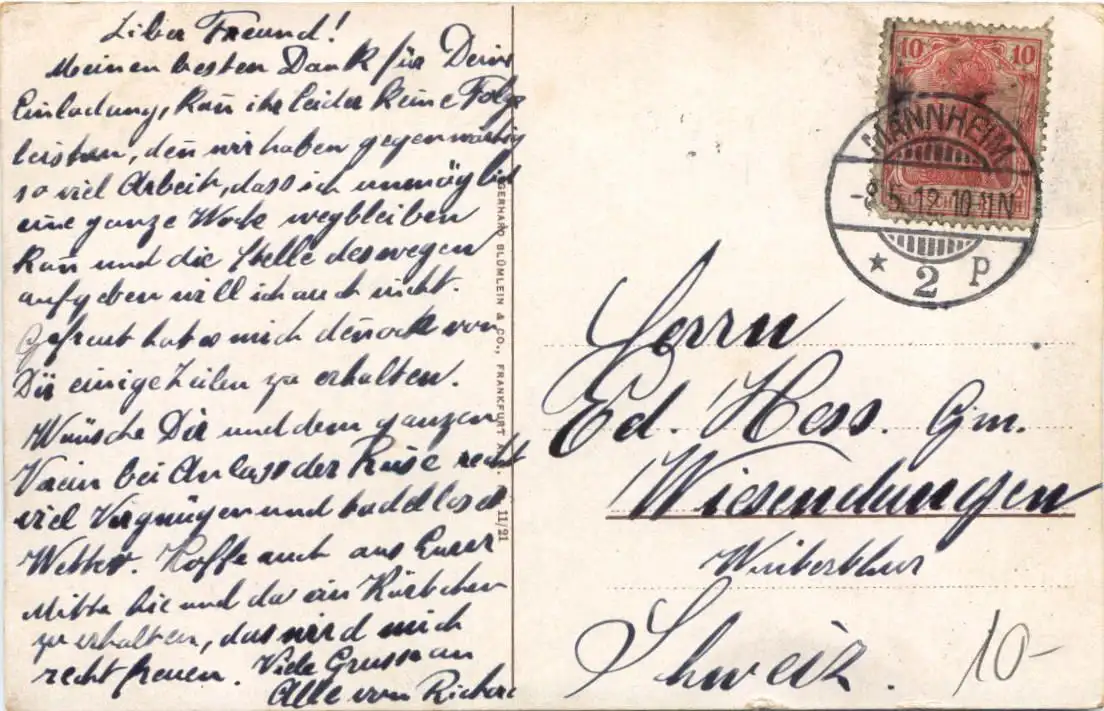 Lieber Freund!
Meinen besten Dank für Deine
Einladung, kan̄ ihr leider keine Folge
leisten, den̄ wir haben gegenwärtig
so viel Arbeit, dass ich unmöglich
eine ganze Woche wegbleiben
kan̄ und die Stelle deswegen
aufgeben will ich auch nicht.
Gefreut hat es mich den̄och von
Dir einige Zeilen zu erhalten.
Wünsche Dir und dem ganzen
Verein bei Anlass der Reise recht
viel Vergnügen und tadelloses
Wetter. Hoffe auch aus Eurer
Mitte hie und da ein Kärtchen
zu erhalten, das wird mich
recht freuen. Viele Grüsse an
Alle von Richard
GERHARD BLÜMLEIN & CO., FRANKFURT
11/21
10 10
MANNHEIM
-8.5.12.10-11N
* 2 P
Herrn
Ed. Hess. Gm.
Wiesendangen
Winterthur
Schweiz.
10-